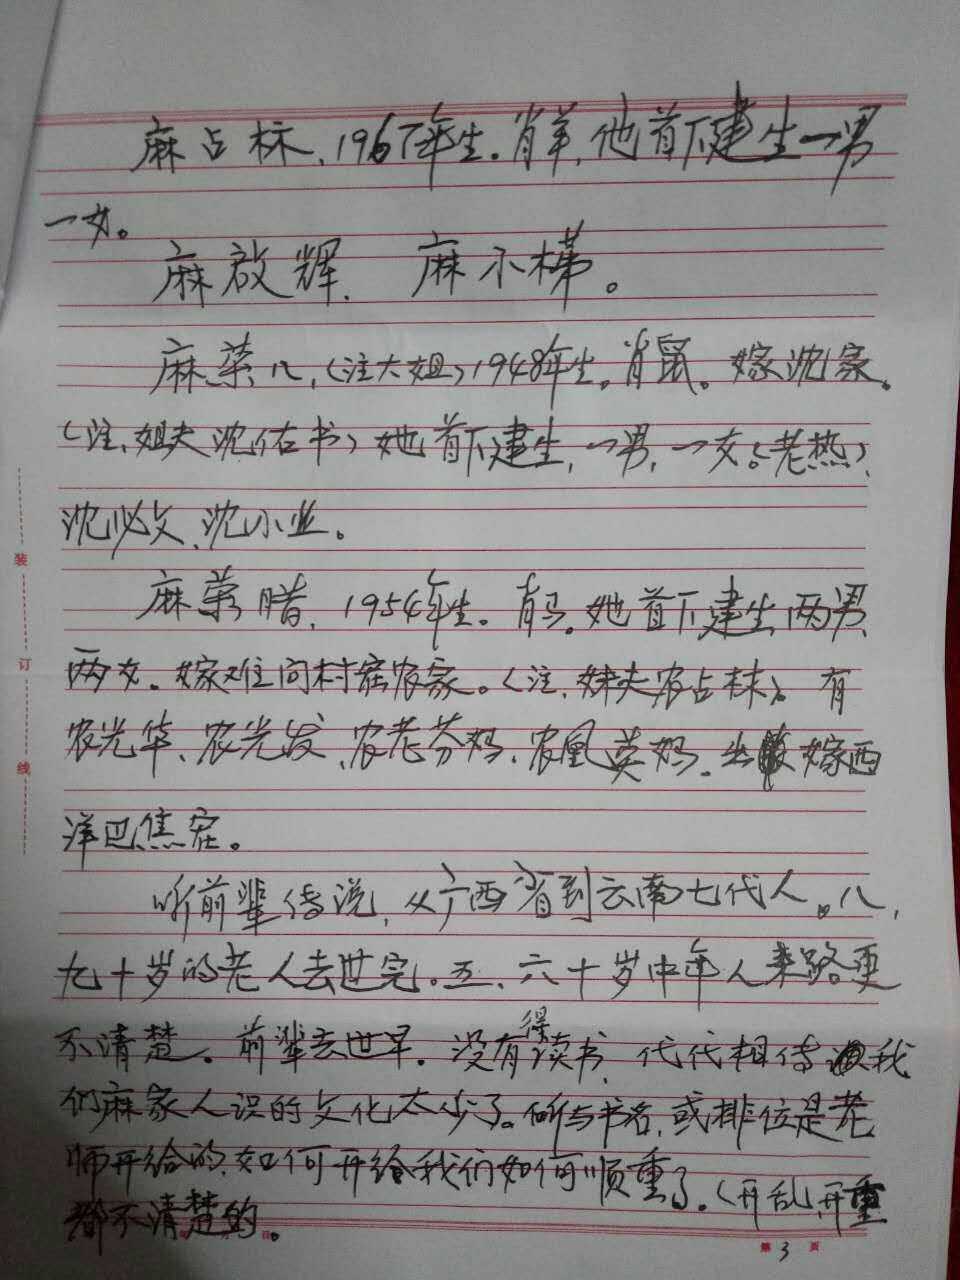 麻占林、1967年生。肖羊,他首下建生一男
一女。
麻啟辉、麻小梯。
麻荣八,(注大姐)1948年生。肖鼠。嫁沈家。
(注、姐夫沈佑书)她首下建生,一男,一女。(老热),
沈必文、沈小业。
麻荣腊,1954年生。肖马。她首下建生两男
两女。嫁难问村寨农家。(注、妹夫农占林)。有
农光华、农光发、农老芬妈、农凰英妈。嫁西
洋巴焦寨。
听前辈传说,从广西省到云南七代人。八,
九十岁的老人去世完。五、六十岁中年人来路更
不清楚。前辈去世早。没有得读书,代代相传我
们麻家人识的文化太少了。所与书名,或排位是老
师开给的,如何开给我们如何顺重了。(开乱开重
都不清楚的。
装
订
线
第 3 页